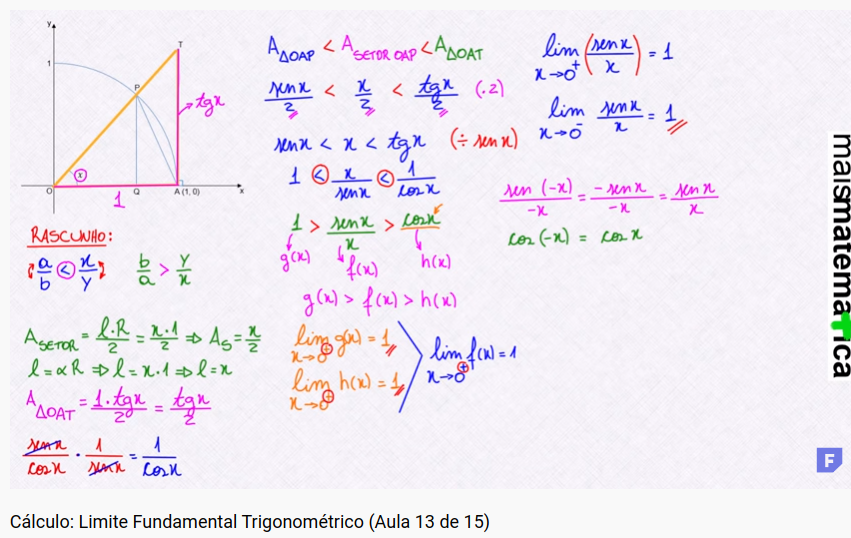 y
T
1
P
tgx
x
O
Q
A (1, 0)
x
1
RASCUNHO:
a/b < x/y
b/a > y/x
A_SETOR = l.R/2 = x.1/2 ⇒ A_S = x/2
l = αR ⇒ l = x.1 ⇒ l = x
A_ΔOAT = 1.tgx/2 = tgx/2
senx/cosx . 1/senx = 1/cosx
A_ΔOAP < A_SETOR OAP < A_ΔOAT
senx/2 < x/2 < tgx/2 (.2)
senx < x < tgx (÷ senx)
1 < x/senx < 1/cosx
1 > senx/x > cosx
g(x) f(x) h(x)
g(x) > f(x) > h(x)
lim x→0⁺ g(x) = 1
lim x→0⁺ h(x) = 1
lim x→0⁺ f(x) = 1
lim x→0⁺ (senx/x) = 1
lim x→0⁻ senx/x = 1
sen(-x)/-x = -senx/-x = senx/x
cos(-x) = cosx
maismatemática
F
Cálculo: Limite Fundamental Trigonométrico (Aula 13 de 15)